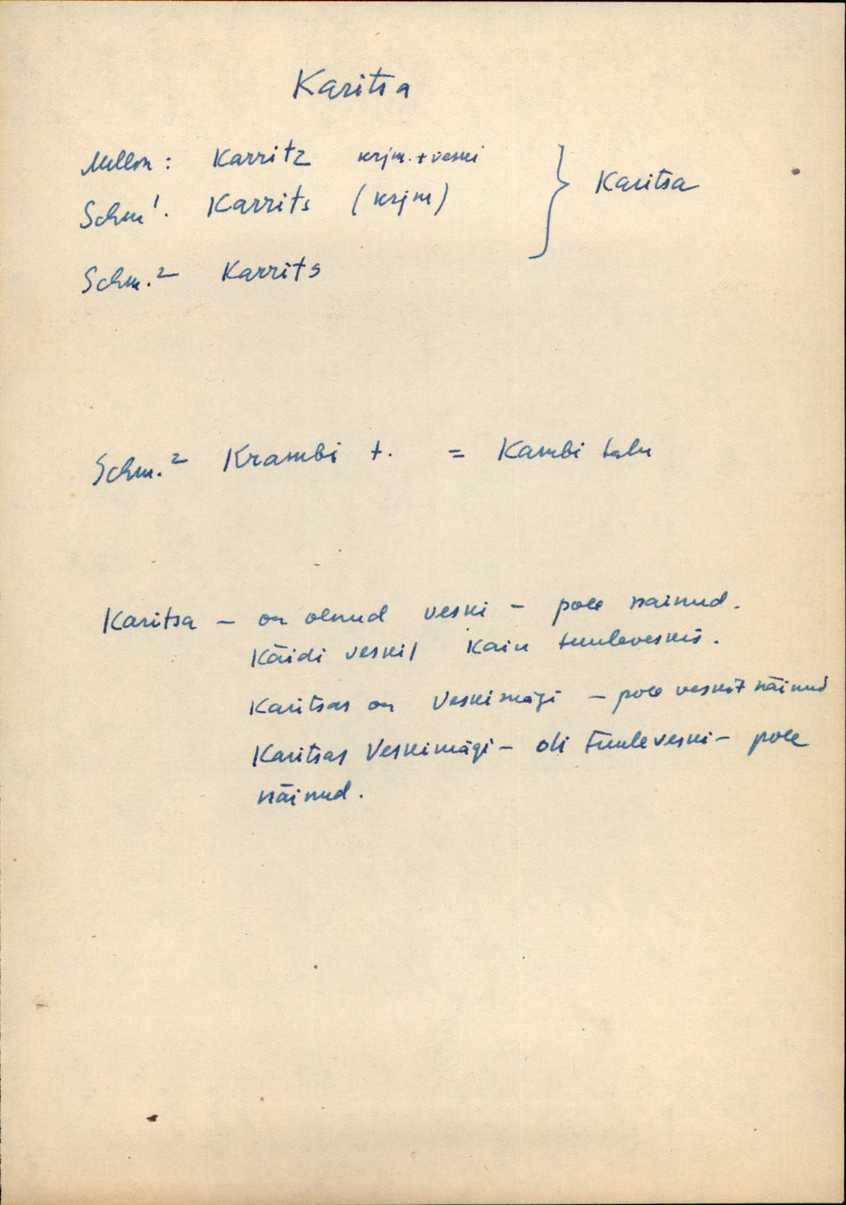 Karitsa
Mellin: Karritz krjm. + veski
Schm¹. Karrits (krjm) } Karitsa
Schm.² Karrits
Schm.² Krambi t. = Kambi talu
Karitsa – on olnud veski – pole näinud.
Käidi veskil Kaiu tuuleveskis.
Karitsas on Veskimägi – pole veskit näinud
Karitsas Veskimägi – oli tuuleveski – pole
näinud.